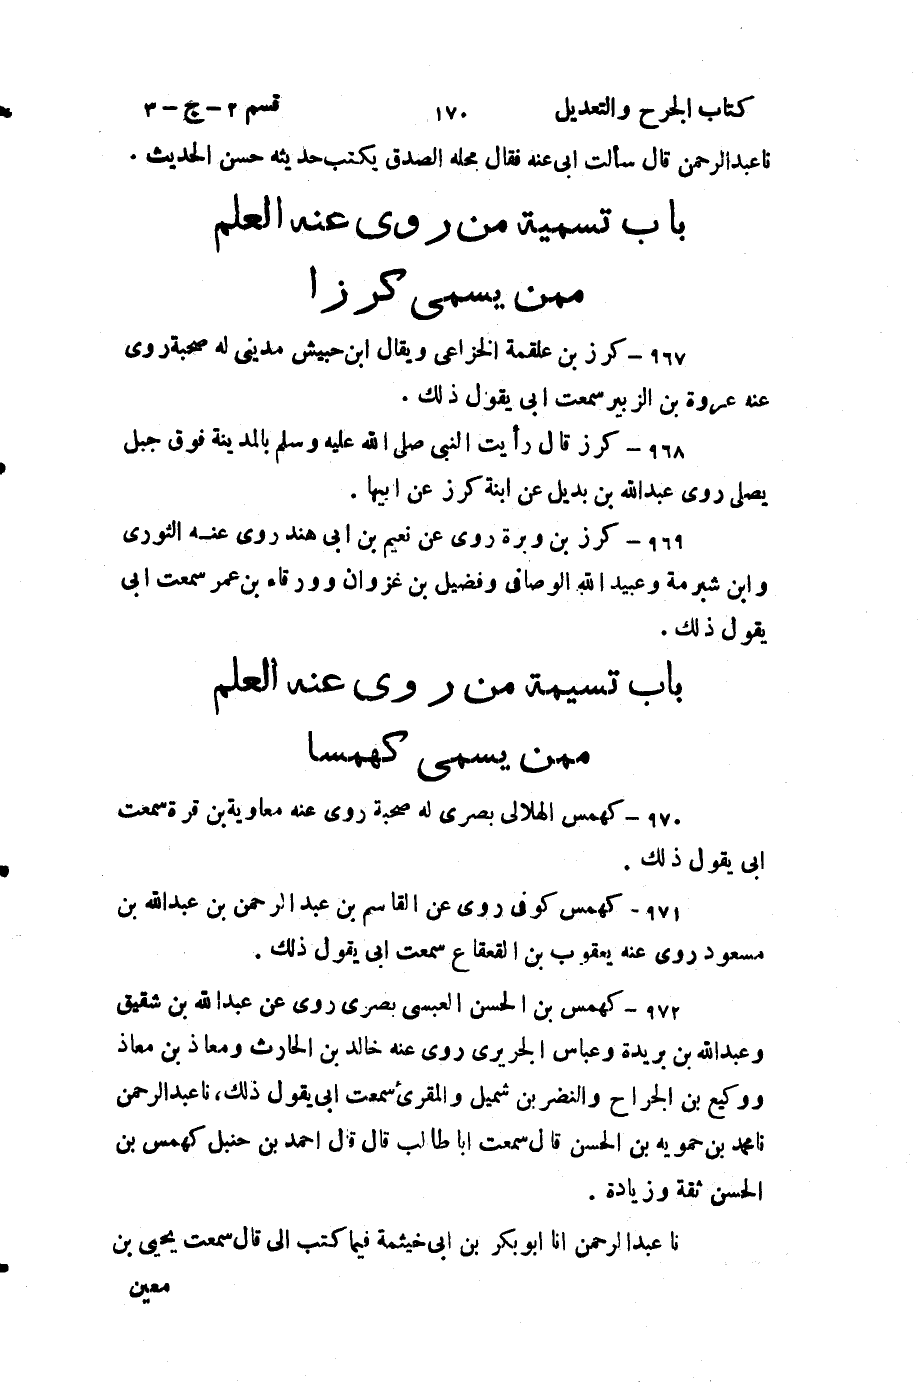 كتاب الجرح والتعديل ١٧٠ قسم ٢ - ج - ٣
نا عبد الرحمن قال سألت ابى عنه فقال محله الصدق يكتب حديثه حسن الحديث .
باب تسمية من روى عنه العلم
ممن يسمى كرزا
٩٦٧ - كرز بن علقمة الخزاعى ويقال ابن حبيش مدينى له صحبة روى
عنه عروة بن الزبير سمعت ابى يقول ذلك .
٩٦٨ - كرز قال رأيت النبى صلى الله عليه وسلم بالمدينة فوق جبل
يصلى روى عبدالله بن بديل عن ابنة كرز عن ابيها .
٩٦٩ - كرز بن وبرة روى عن نعيم بن ابى هند روى عنه الثورى
وابن شبرمة وعبيد الله الوصافى وفضيل بن غزوان وورقاء بن عمر سمعت ابى
يقول ذلك .
باب تسيمة من روى عنه العلم
ممن يسمى كهمسا
٩٧٠ - كهمس الهلالى بصرى له صحبة روى عنه معاوية بن قرة سمعت
ابى يقول ذلك .
٩٧١ - كهمس كوفى روى عن القاسم بن عبد الرحمن بن عبدالله بن
مسعود روى عنه يعقوب بن القعقاع سمعت ابى يقول ذلك .
٩٧٢ - كهمس بن الحسن العبسى بصرى روى عن عبدالله بن شقيق
وعبدالله بن بريدة وعباس الجريرى روى عنه خالد بن الحارث ومعاذ بن معاذ
ووكيع بن الجراح والنضر بن شميل والمقرئ سمعت ابى يقول ذلك، نا عبدالرحمن
نا محمد بن حمويه بن الحسن قال سمعت ابا طالب قال قال احمد بن حنبل كهمس بن
الحسن ثقة وزيادة .
نا عبدالرحمن انا ابو بكر بن ابى خيثمة فيما كتب الى قال سمعت يحيى بن
معين